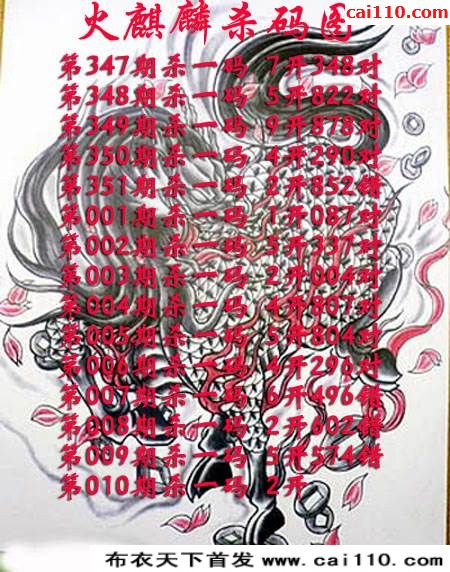 cai110.com
火麒麟杀码图
第347期杀一码 7开348对
第348期杀一码 5开822对
第349期杀一码 9开878对
第350期杀一码 4开290对
第351期杀一码 2开852错
第001期杀一码 1开087对
第002期杀一码 5开337对
第003期杀一码 2开004对
第004期杀一码 4开807对
第005期杀一码 5开804对
第006期杀一码 4开296对
第007期杀一码 6开496错
第008期杀一码 2开602错
第009期杀一码 5开574错
第010期杀一码 2开
布衣天下首发 www.cai110.com